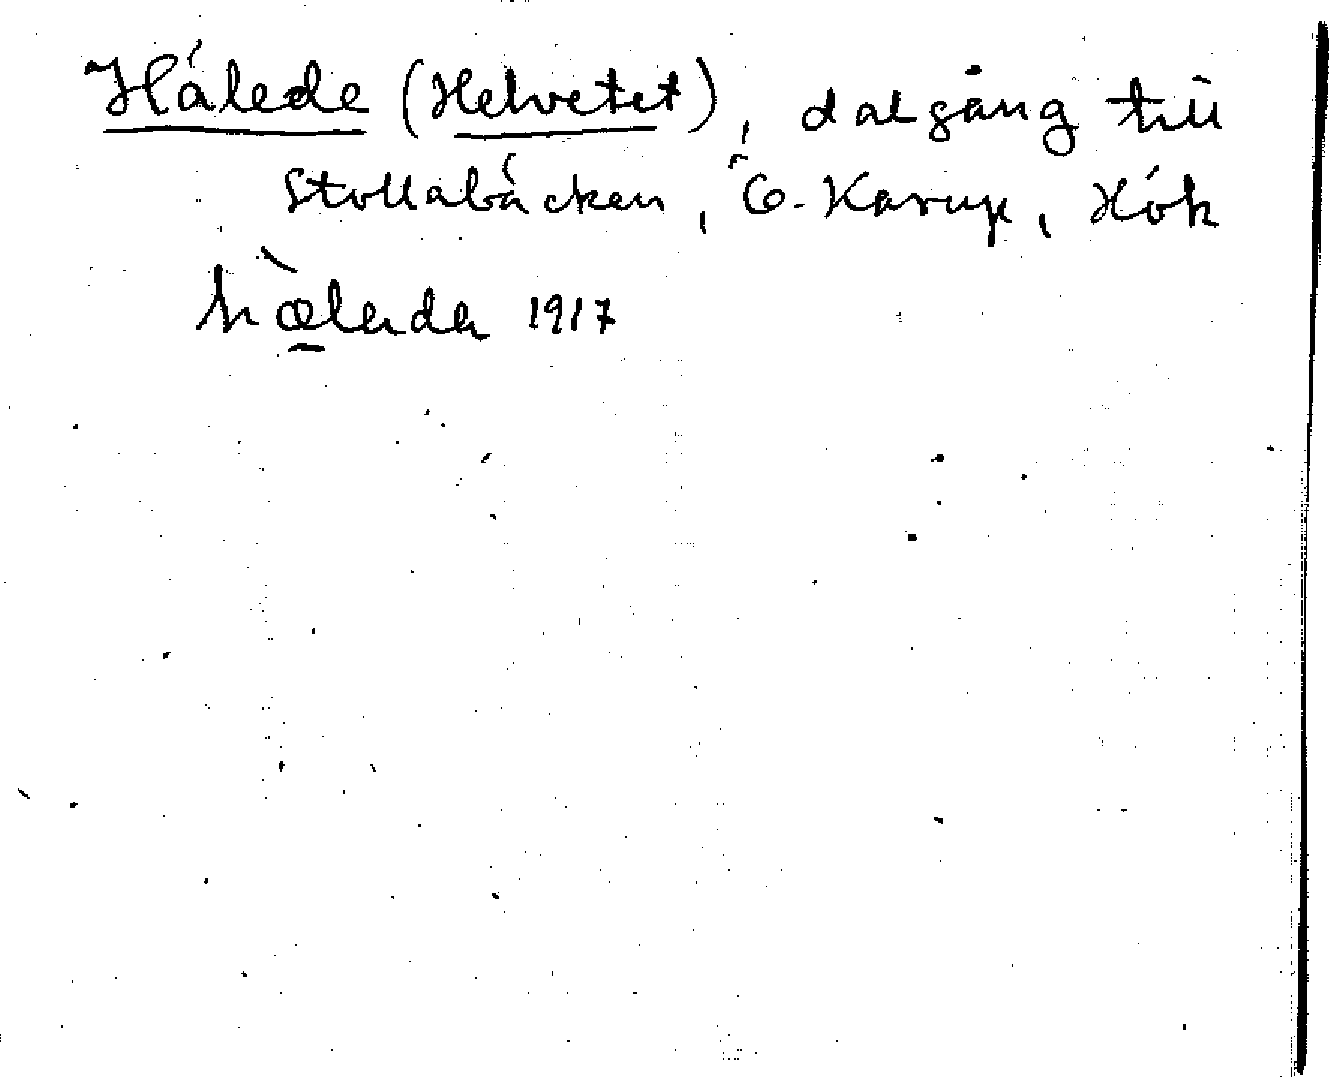 Hålede (Helvetet), dalgång till
Stollabäcken, Ö. Karup, Hök
hælada 1917